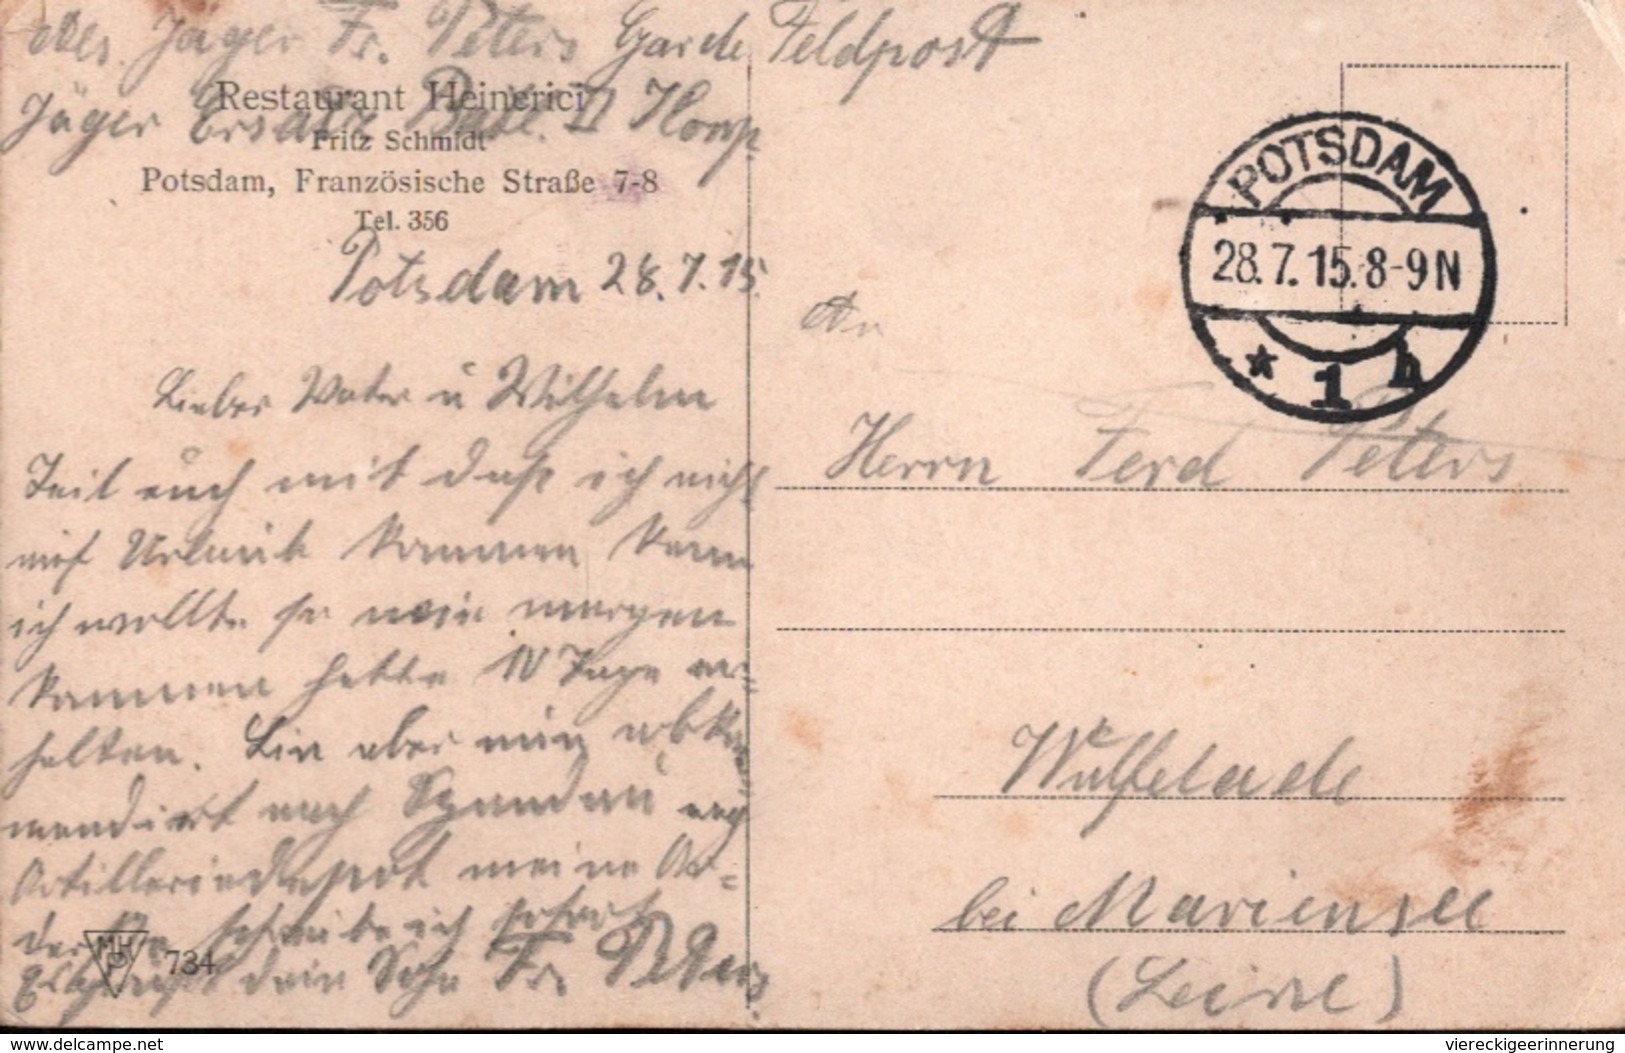 Abs. Jäger Fr. Peters Garde Feldpost
Jäger Ersatz Batl. II Komp.
Restaurant Heinerici
Fritz Schmidt
Potsdam, Französische Straße 7-8
Tel. 356
Potsdam 28.7.15.
Lieber Vater u Wilhelm
Teil euch mit daß ich nicht
auf Urlaub kommen kann
ich wollte so wie morgen
kommen hatte 10 Tage er=
halten. Bin aber nun abkom
mandirt nach Spandau nach
Artilleriedepot meine Ad=
schreibe ich sofort
dein Sohn Fr. Peters
MHP
734
POTSDAM
28.7.15.8-9N
* 1 h
An
Herrn Ferd Peters
Wulfelade
bei Mariensee
(Leine)
viereckigeerinnerung
www.delcampe.net